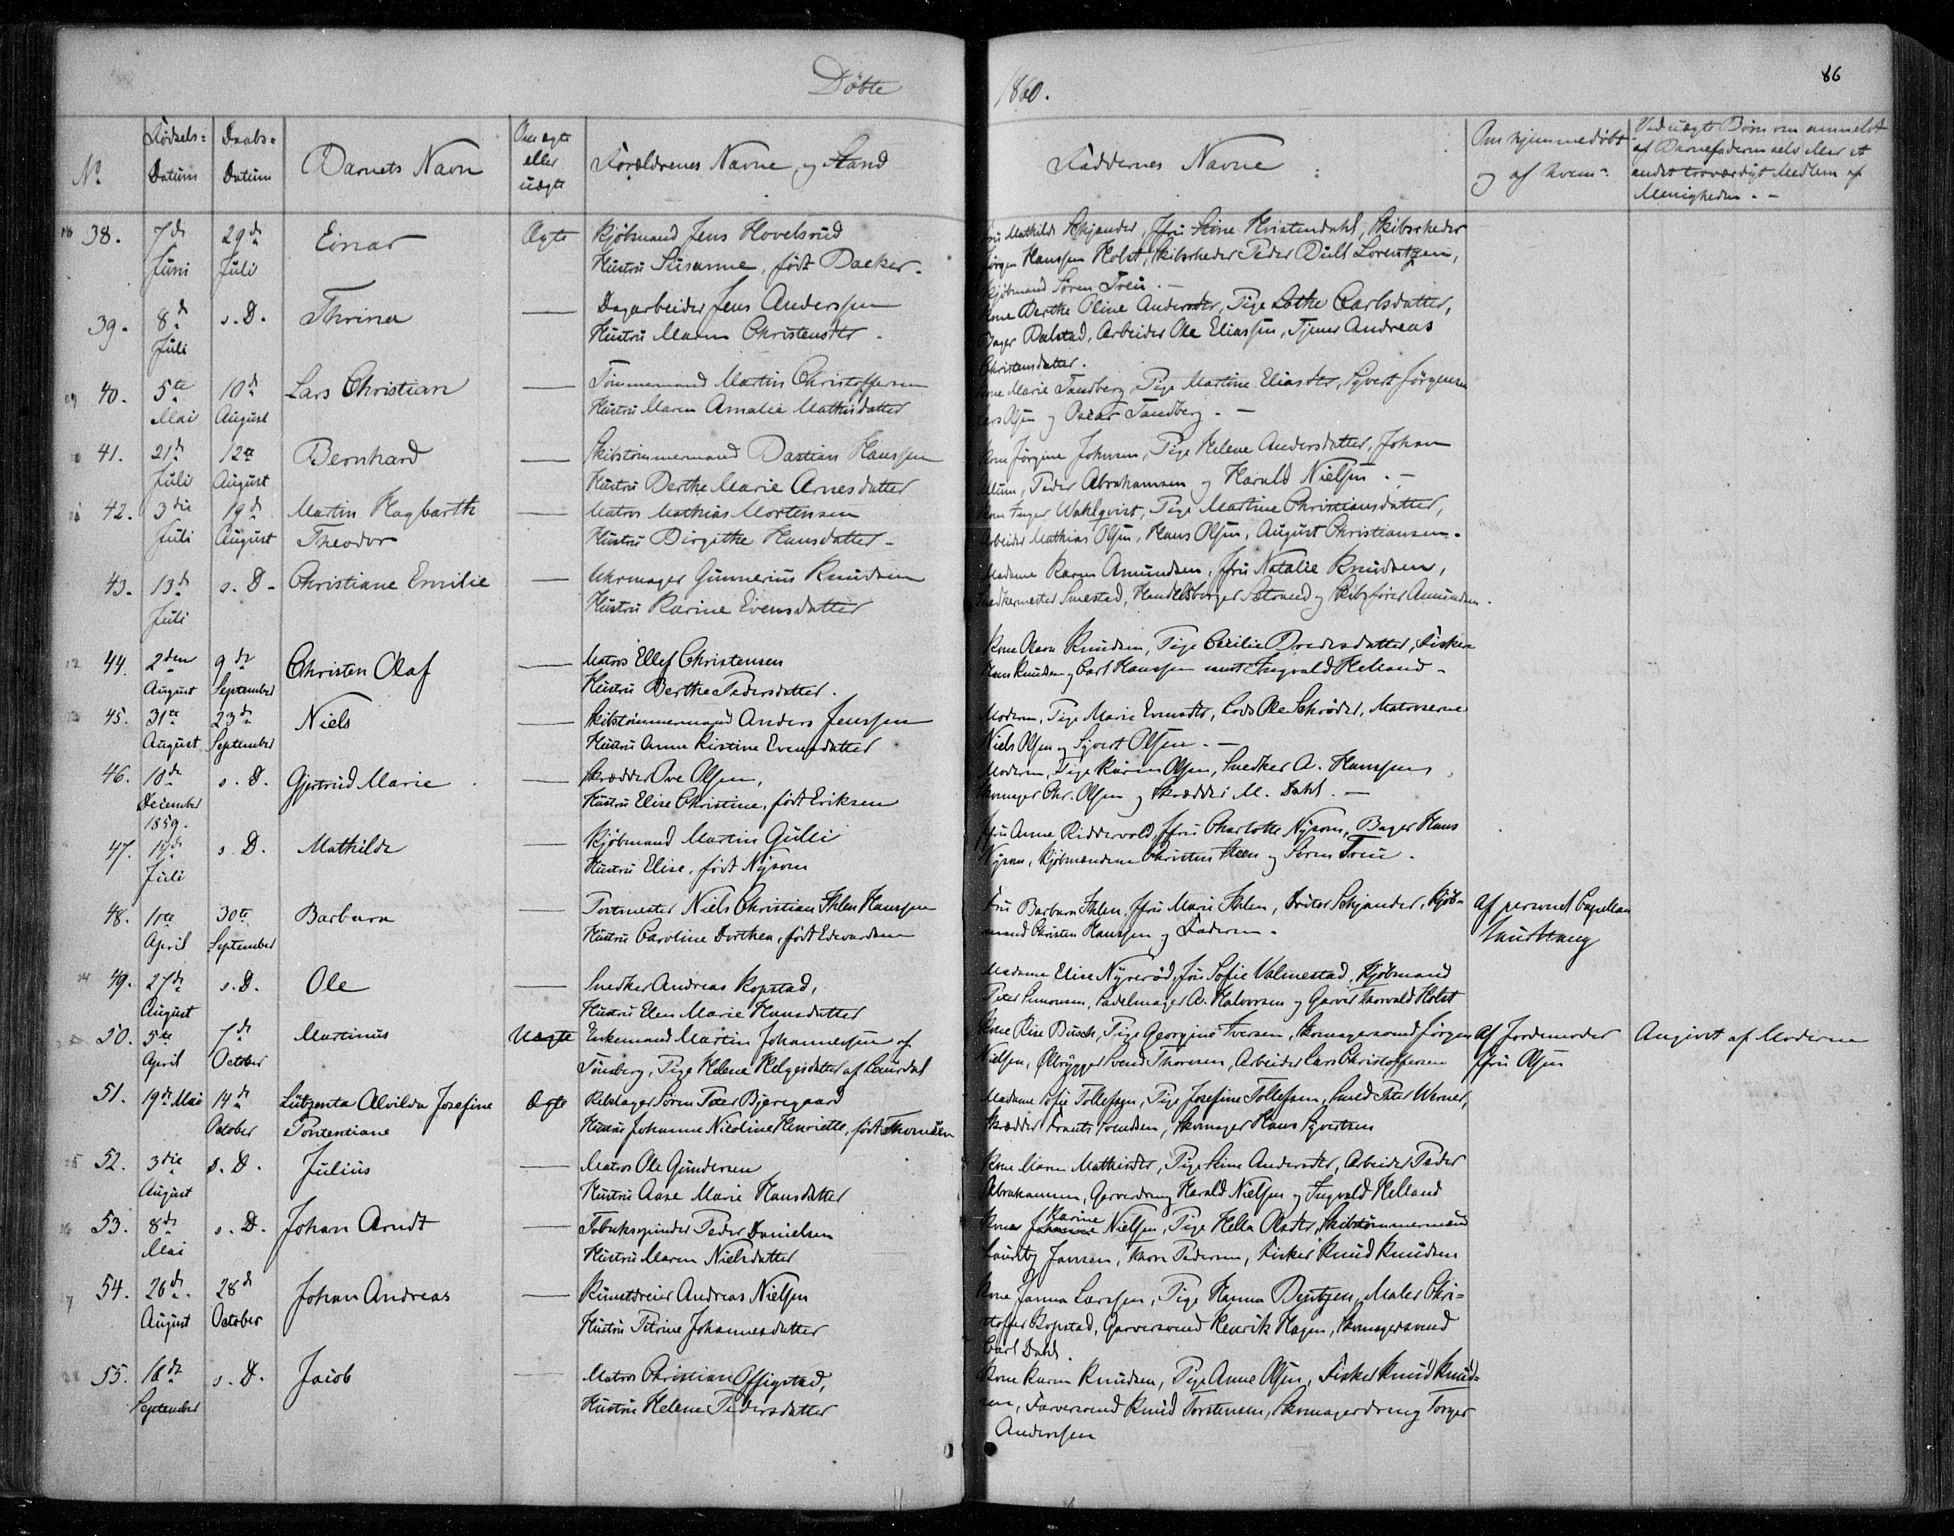 Döbte 1860. 86
No Födsels-Datum Daabs-Datum Barnets Navn Om ægte eller uægte Forældrenes Navne og Stand Faddernes Navne Om hjemmedöbt og af hvem Ved uægte Börn om anmeldt af Barnefaderen selv eller et andet troværdigt Medlem af Menigheden. -
38. 7de Juni 29de Juli Einar Ægte Kjöbmand Jens Hovelsrud
Hustru Susanne, född Backer.
Fru Mathilde Schjander, Jfru Stine Christendahl, Skibsrheder
Jörgen Hanssen Holst, Skibsrheder Peder Bull Lorentzen,
Kjöbmand Sören Treu. -
39. 8de Juli s. D. Thrina Dagarbeider Jens Anderssen
Hustru Maren Christensdtr.
Kone Berthe Oline Andersdtr, Pige Lothe Carlsdatter,
Bager Dalstad, Arbeider Ole Eliassen, Tjener Andreas
Christensdatter.
40. 5te Mai 10de August Lars Christian Tömmermand Martin Christoffersen
Hustru Maren Amalie Mathisdatter
Kone Marie Sandberg, Pige Martine Eliasdtr, Syvert Jörgensen
Lars Olsen og Oscar Sandberg. -
41. 21de Juli 12te August Bernhard Skibstömmermand Bastian Hanssen
Hustru Berthe Marie Arnesdatter
Kone Jörgine Johnsen, Pige Helene Andersdatter, Johan
Peder Abrahamsen og Harald Nielsen. -
42. 3die Juli 19de August Martin Hagbarth Theodor Matros Mathias Mortensen
Hustru Birgithe Hansdatter -
Kone Inger Wahlqvist, Pige Martine Christiansdatter,
Arbeider Mathias Olsen, Hans Olsen, August Christiansen.
43. 13de Juli s. D. Christiane Emilie Uhrmager Gunnerius Knudsen
Hustru Karine Evensdatter
Madame Karen Amundsen, Jfru Natalie Knudsen,
Snedkermester Smestad, Handelsborger Sætrand og Skibsförer Amundsen.
44. 2den August 9de September Christen Olaf Matros Ellef Christensen
Hustru Berthe Pedersdatter.
Kone Maren Knudsen, Pige Cecilie Bredesdatter, Fisker
Hans Knudsen og Carl Hanssen samt Ingvald Helland -
45. 31te August 23de September Niels Skibstömmermand Anders Jenssen
Hustru Anne Kirstine Evensdatter
Moderen, Pige Marie Evensdtr, Lods Ole Schröder, Matroserne
Niels Olsen og Syvert Olsen. -
46. 10de December 1859. s. D. Gjertrud Marie Skrædder Ove Olsen,
Hustru Elise Christine, född Eriksen
Moderen, Pige Karen Olsen, Snedker A. Hanssen,
Skomager Chr. Olsen og Skrædder M. Dahl. -
47. 14de Juli s. D. Mathilde Kjöbmand Martin Gulli
Hustru Elise, född Nysom
Jfru Anne Riddervold, Jfru Charlotte Nysom, Bager Hans
Nysom, Kjöbmændene Christen Steen og Sören Treu.
48. 11te April 30te September Barbara Postmester Niels Christian Ihlen Hanssen
Hustru Caroline Dorthea, född Edvardsen
Fru Barbara Ihlen, Jfru Marie Ihlen, Doctor Schjander, Kjöb-
mand Christen Hanssen og Faderen. Af personel Capellan
49. 27de August s. D. Ole Snedker Andreas Kopstad,
Hustru Elen Marie Hansdatter
Madame Elise Nyeröd, Jfru Sofie Valmestad, Kjöbmand
Peter Simonsen, Sadelmager A. Halvorsen og Garver Thorvald Holst
50. 5te April 7de October Martinus Uægte Enkemand Martin Johannessen af
Tönsberg, Pige Helene Helgesdatter af Laurdal
Kone Lise Busch, Pige Georgine Iversen, Skomagersvend Jörgen
Nielsen, Ölbrygger Svend Thoresen, Arbeider Lars Christoffersen Af Jordemoder Jfru Olsen Angivet af Moderen
51. 19de Mai 14de October Lützenta Alvilda Josefine Pontentiane Ægte Rebslager Sören Peter Bjerregaard
Hustru Johanne Nicoline Henriette, född Thomsen
Madame Sofie Tollefsen, Pige Josefine Tollefsen, Smed Peter Werner,
Skrædder Frants Svendsen, Skomager Hans Syvertsen
52. 3die August s. D. Julius Matros Ole Gundersen
Hustru Aase Marie Hansdatter
Kone Maren Mathisdtr, Pige Stine Andersdtr, Arbeider Peder
Abrahamsen, Garverdreng Harald Nielsen og Ingvald Helland
53. 8de Mai s. D. Johan Arndt Tobakspinder Peder Danielsen
Hustru Maren Nielsdatter
Kone Karine Nielsen, Pige Helle Olsdtr, Skibstömmermand
Lauritz Jansen, Thore Pedersen, Fisker Knud Knudsen
54. 26de August 28de October Johan Andreas Kunstdreier Andreas Nielsen
Hustru Petrine Johannesdatter
Kone Janna Larssen, Pige Hanna Bentzen, Maler Chri-
stoffer Kopstad, Garversvend Henrik Hagen, Skomagersvend
Carl Dahl.
55. 16de September s. D. Jacob Matros Christian Offigstad,
Hustru Helene Pedersdatter
Kone Karen Knudsen, Pige Anne Olsen, Fisker Knud Knud-
sen, Farversvend Knud Torstensen, Skomagerdreng Torger
Anderssen